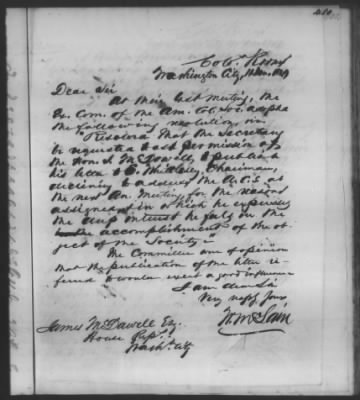 Colo. Rooms
Washington City, 
Dear Sir
At their last meeting, the
Ex. Com. of the Am. Col. Soc. adopted
the following resolution viz
"Resolved That the Secretary
be requested to ask permission of
the Hon. J. McDowell, to publish
his letter to E. Whittlesey, Chairman,
declining to address the A.C.S. at
the next An. Meeting for the reasons
assigned & in which he expresses
the deep interest he feels in the
accomplishment of the ob-
ject of the Society."
The Committee are of opinion
that the publication of the letter re-
ferred to would exert a good influence
I am dear Sir
Very respy Yours
W. McLain
James McDowell Esq.
House Reps.
Washn. City